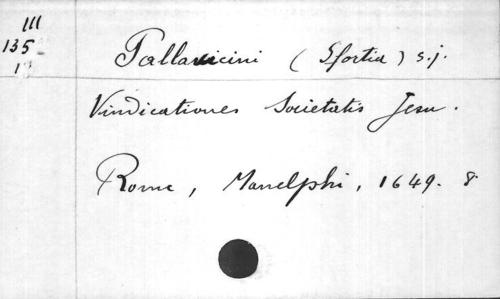 III
135
1
Pallavicini (Sfortia) s.j.
Vindicationes Societatis Jesu.
Rome, Manelphi, 1649. 8